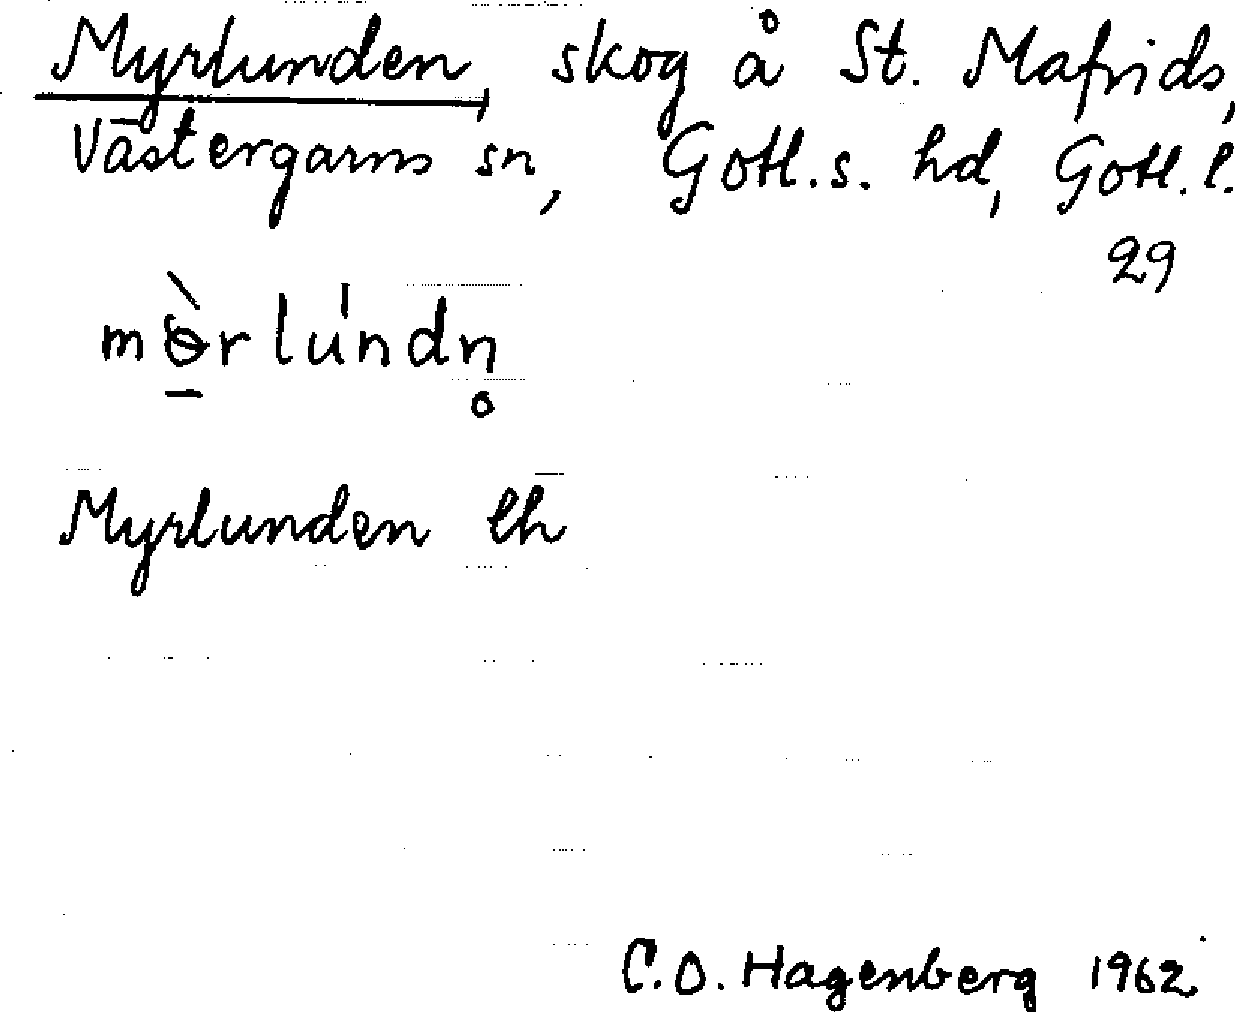 Myrlunden, skog å St. Mafrids,
Västergarns sn, Gotl. s. hd, Gotl. l.
29
mɵ̠̀rlúndn̥
Myrlunden lh
C.O. Hagenberg 1962